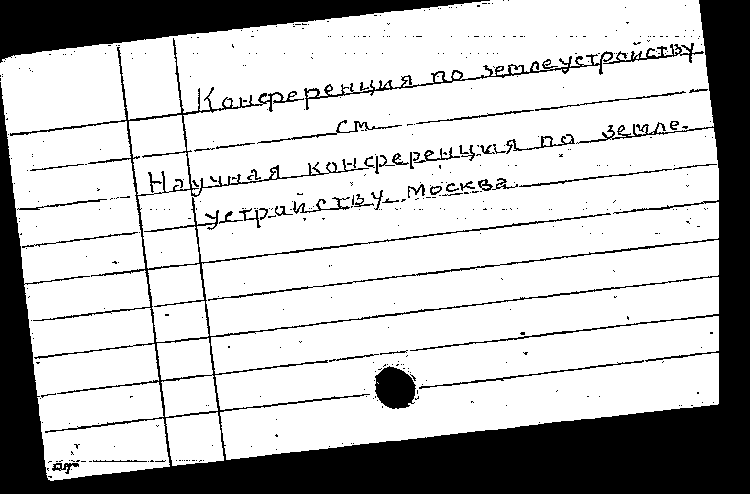 Конференция по землеустройству
см.
Научная конференция по земле-
устройству. Москва.